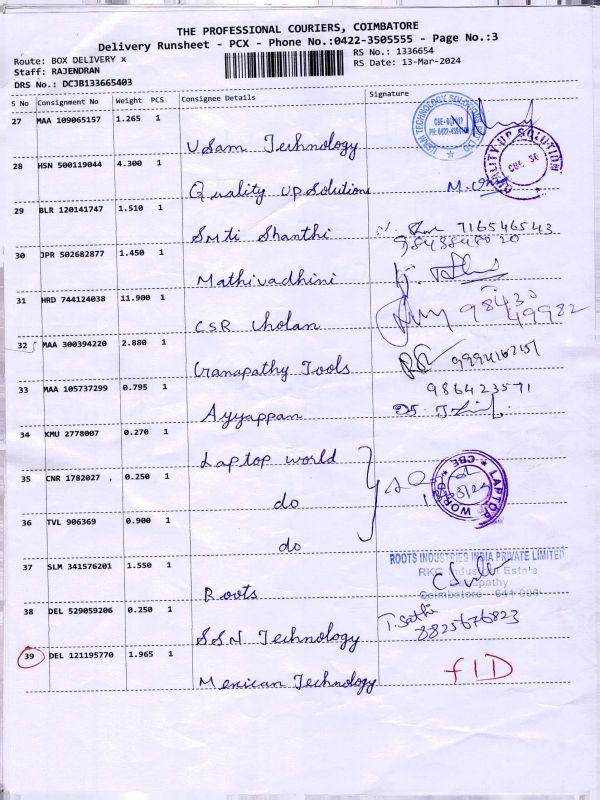 THE PROFESSIONAL COURIERS, COIMBATORE
Delivery Runsheet - PCX - Phone No.:0422-3505555 - Page No.:3
Route: BOX DELIVERY x RS No.: 1336654
Staff: RAJENDRAN RS Date: 13-Mar-2024
DRS No.: DCJB133665403
S No Consignment No Weight PCS Consignee Details Signature
27 MAA 109065157 1.265 1
USam Technology
28 HSN 500119044 4.300 1
QUALITY UP SOLUTION
CBE 36
Quality UP Solutions
29 BLR 120141747 1.510 1
Smti Shanthi 716546543
30 JPR 502682877 1.450 1
Mathivadhini
31 HRD 744124038 11.900 1
CSR Cholan 98430
49982
32 MAA 300394220 2.880 1
Ganapathy Tools
33 MAA 105737299 0.795 1
986423571
Ayyappan
34 KMU 2778007 0.270 1
Laptop world
35 CNR 1782027 0.250 1
LAPTOP WORLD CBE
do
36 TVL 906369 0.900 1
do
37 SLM 341576201 1.550 1
ROOTS INDUSTRIES INDIA PRIVATE LIMITED
RKG Industrial Estate
Coimbatore - 641 006
Roots
38 DEL 529059206 0.250 1
T. Sathi
8825676823
SSN Technology
39 DEL 121195770 1.965 1
FID
Mexican Technology